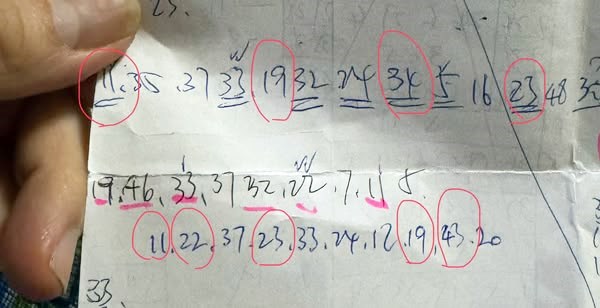 23.
11.35.37 33.19 32 24 34 5 16 23 48 35
19.46.33.37 32.22.7.11 8.
11.22.37.23.33.24.12.19.43.20
33